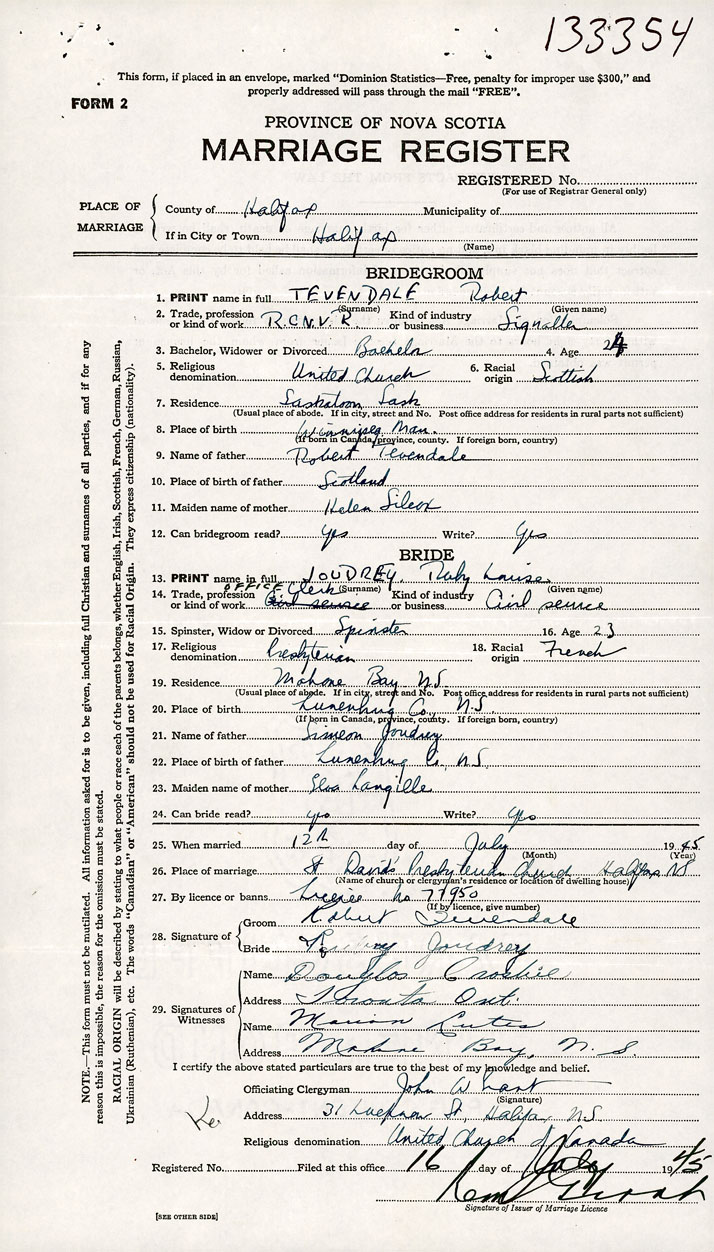 133354
This form, if placed in an envelope, marked "Dominion Statistics—Free, penalty for improper use $300," and
properly addressed will pass through the mail "FREE".
FORM 2
PROVINCE OF NOVA SCOTIA
MARRIAGE REGISTER
REGISTERED No.
(For use of Registrar General only)
PLACE OF MARRIAGE
County of Halifax Municipality of
If in City or Town Halifax
(Name)
BRIDEGROOM
1. PRINT name in full TEVENDALE Robert
(Surname) (Given name)
2. Trade, profession or kind of work R.C.N.V.R. Kind of industry or business Signaller
3. Bachelor, Widower or Divorced Bachelor 4. Age 24
5. Religious denomination United Church 6. Racial origin Scottish
7. Residence Saskatoon Sask
(Usual place of abode. If in city, street and No. Post office address for residents in rural parts not sufficient)
8. Place of birth Winnipeg Man.
(If born in Canada, province, county. If foreign born, country)
9. Name of father Robert Tevendale
10. Place of birth of father Scotland
11. Maiden name of mother Helen Silcox
12. Can bridegroom read? Yes Write? Yes
BRIDE
13. PRINT name in full JOUDREY, Ruby Louise
(Surname) (Given name)
14. Trade, profession or kind of work OFFICE Clerk Civil service Kind of industry or business Civil service
15. Spinster, Widow or Divorced Spinster 16. Age 23
17. Religious denomination Presbyterian 18. Racial origin French
19. Residence Mahone Bay N.S.
(Usual place of abode. If in city, street and No. Post office address for residents in rural parts not sufficient)
20. Place of birth Lunenburg Co., N.S.
(If born in Canada, province, county. If foreign born, country)
21. Name of father Simeon Joudrey
22. Place of birth of father Lunenburg Co. N.S.
23. Maiden name of mother Langille
24. Can bride read? yes Write? Yes
25. When married 12th day of July 1945
(Month) (Year)
26. Place of marriage St David's Presbyterian Church Halifax NS
(Name of church or clergyman's residence or location of dwelling house)
27. By licence or banns Licence No 77950
(If by licence, give number)
28. Signature of
Groom Robert Tevendale
Bride Joudrey
29. Signatures of Witnesses
Name Douglas
Address Toronto Ont.
Name Marion
Address Mahone Bay, N.S.
I certify the above stated particulars are true to the best of my knowledge and belief.
Officiating Clergyman John W
(Signature)
Address 31 St, Halifax, NS
Religious denomination United Church of Canada
Registered No. Filed at this office 16 day of July 1945
Signature of Issuer of Marriage Licence
[SEE OTHER SIDE]
NOTE.—This form must not be mutilated. All information asked for is to be given, including full Christian and surnames of all parties, and if for any
reason this is impossible, the reason for the omission must be stated.
RACIAL ORIGIN will be described by stating to what people or race each of the parents belongs, whether English, Irish, Scottish, French, German, Russian,
Ukrainian (Ruthenian), etc. The words "Canadian" or "American" should not be used for Racial Origin. They express citizenship (nationality).